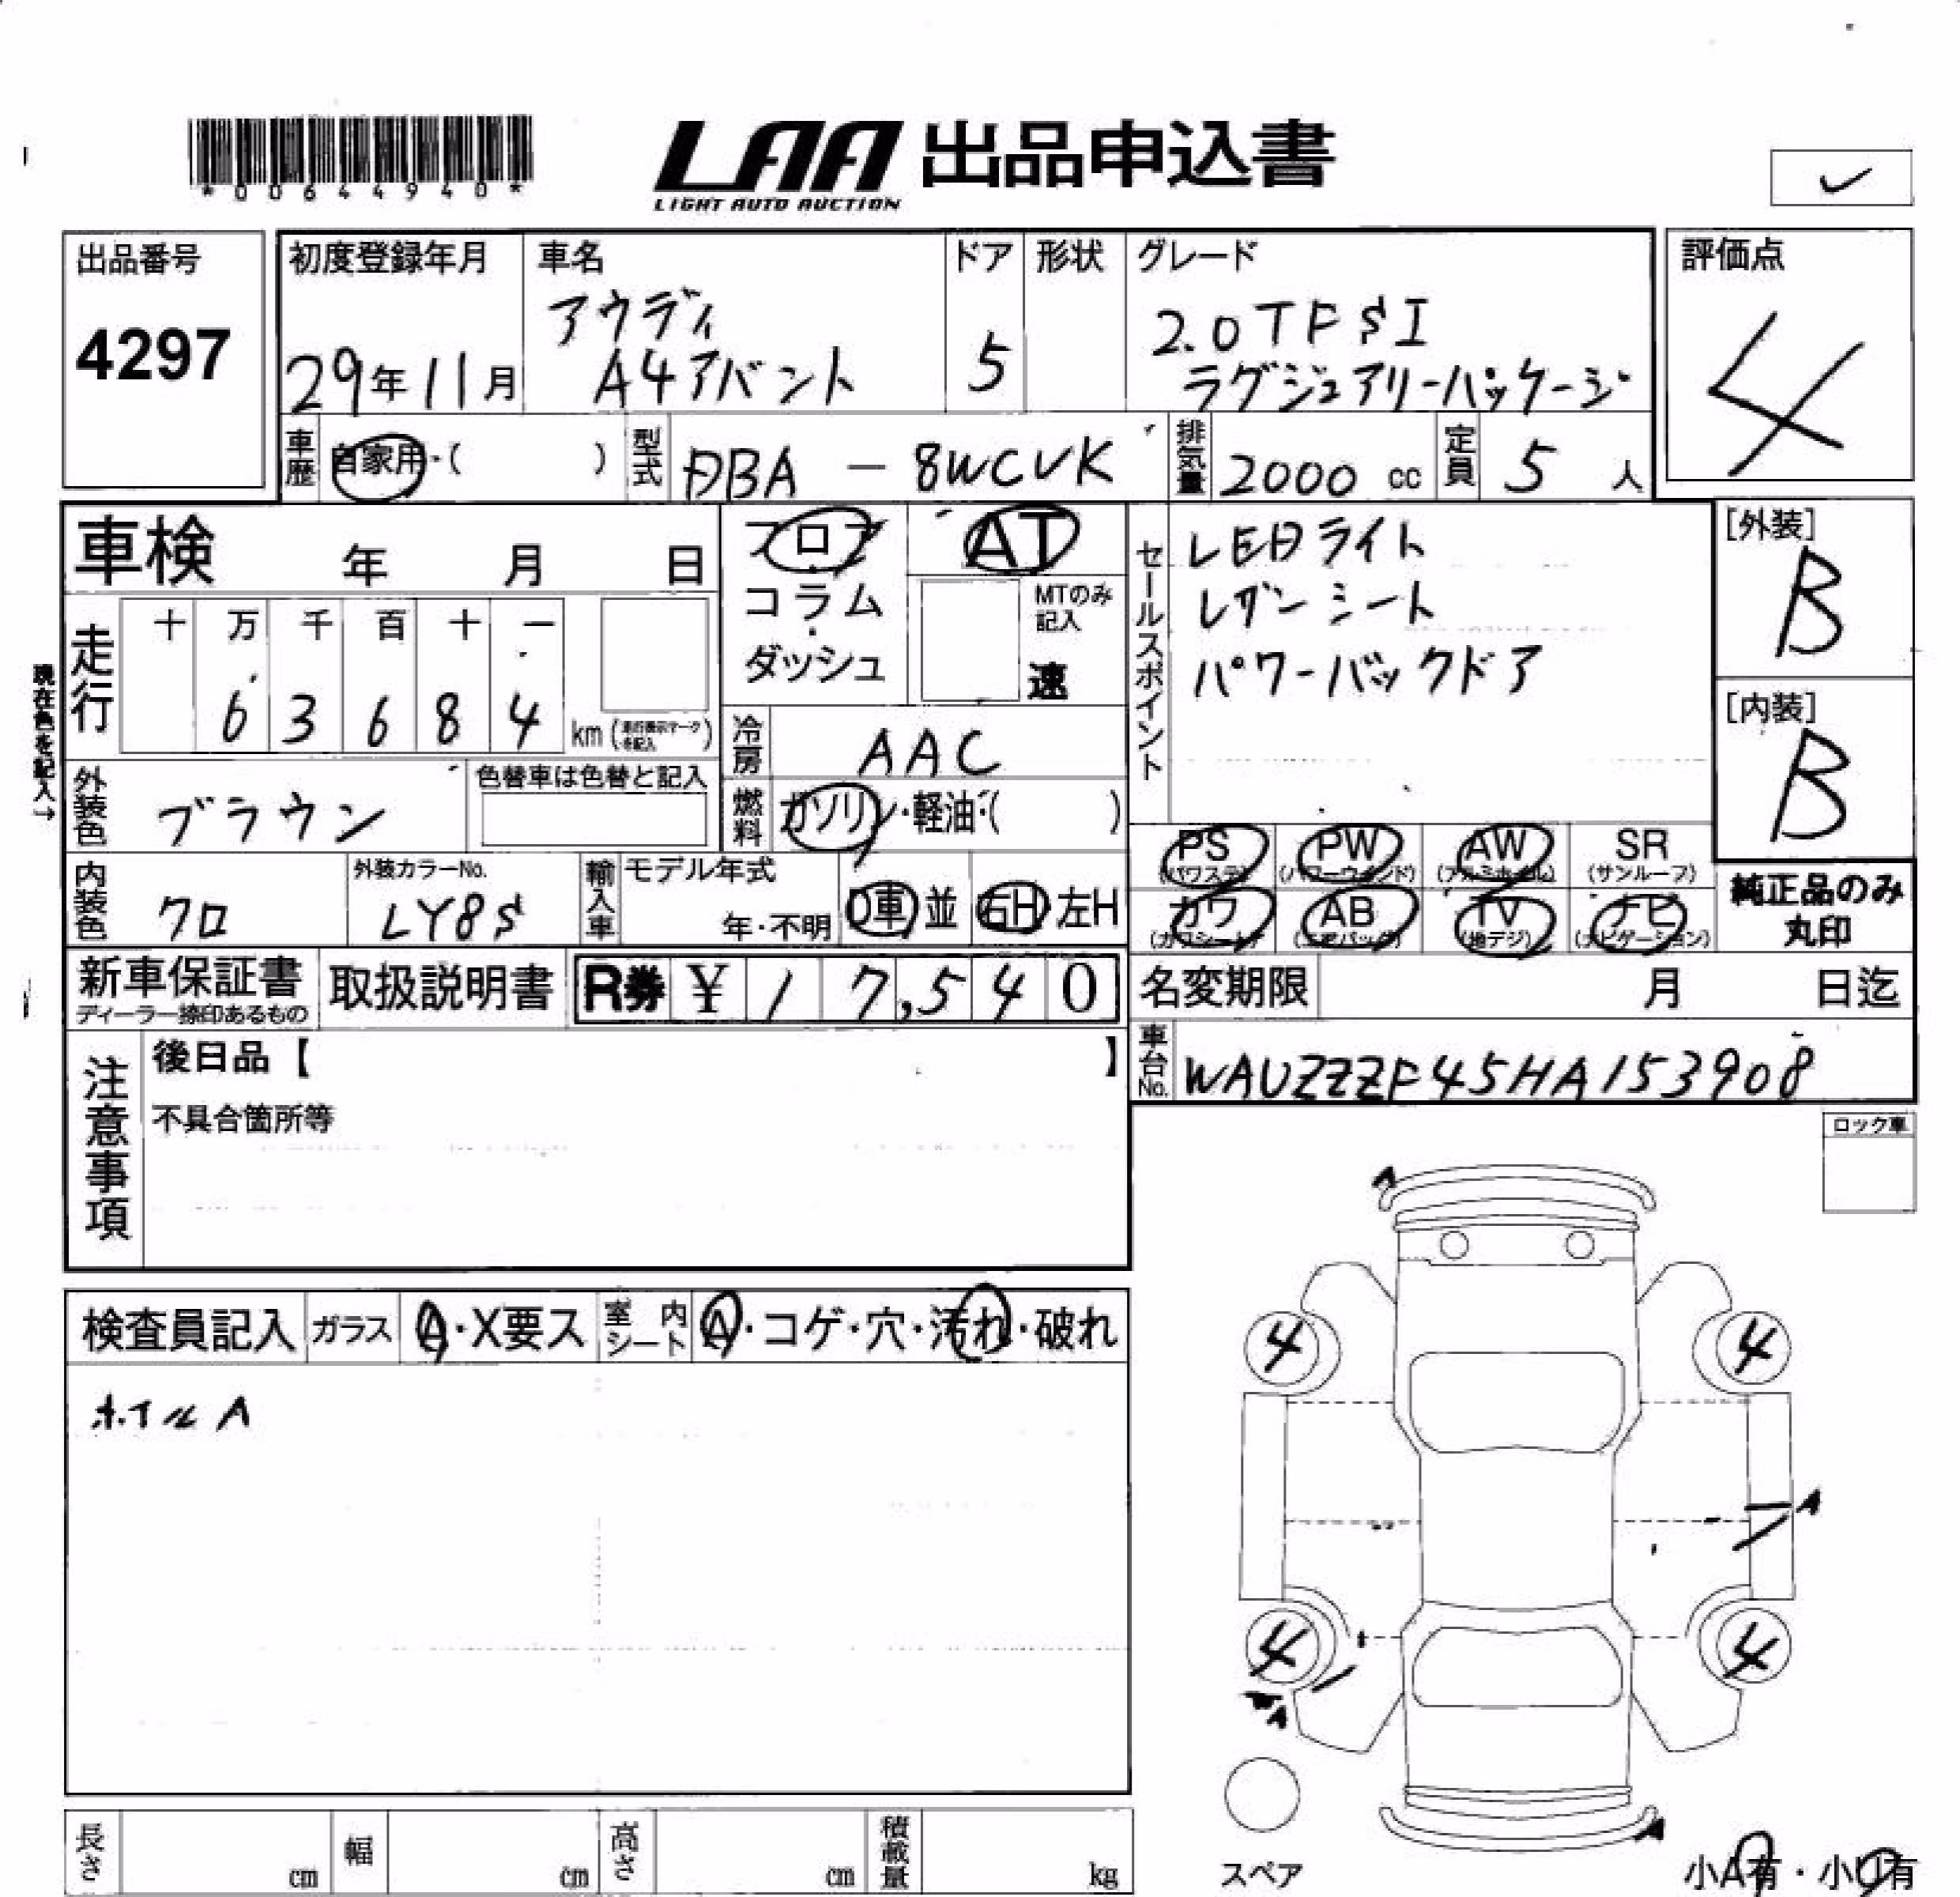 *00644940*
LAA 出品申込書
LIGHT AUTO AUCTION
出品番号
4297
初度登録年月
29年11月
車名
アウディ
A4アバント
ドア
5
形状
グレード
2.0TFSI
ラグジュアリーパッケージ
評価点
4
車歴
自家用・( )
型式
DBA - 8WCVK
排気量
2000 cc
定員
5 人
車検 年 月 日
フロア
コラム
ダッシュ
AT
MTのみ
記入
速
セールスポイント
LEDライト
レザーシート
パワーバックドア
[外装]
B
[内装]
B
現在色を記入→
走行
十 万 千 百 十 一
6 3 6 8 4
km (走行表示マークを記入)
冷房
AAC
外装色
ブラウン
色替車は色替と記入
燃料
ガソリン・軽油・( )
PS
(パワステ)
PW
(パワーウインド)
AW
(アルミホイル)
SR
(サンルーフ)
カワ
(カワシート)
AB
(エアバッグ)
TV
(地デジ)
ナビ
(ナビゲーション)
純正品のみ
丸印
内装色
クロ
外装カラーNo.
LY8S
輸入車
モデル年式
年・不明
D車 並
右H 左H
新車保証書
ディーラー捺印あるもの
取扱説明書
R券 ¥ 1 7,5 4 0
名変期限 月 日迄
注意事項
後日品【 】
不具合箇所等
車台No.
WAUZZZF45HA153908
ロック車
検査員記入
ガラス
A・X要ス
室内シート
A・コゲ・穴・汚れ・破れ
ホイルA
A
4
4
A
4
4
A
A
スペア
小A有・小U有
長さ cm
幅 cm
高さ cm
積載量 kg